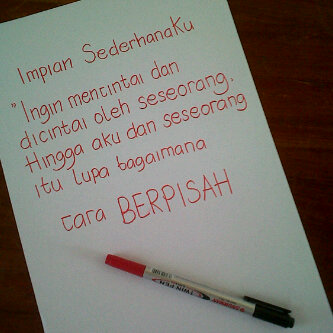 Impian SederhanaKu
"Ingin mencintai dan
dicintai oleh seseorang.
Hingga aku dan seseorang
itu lupa bagaimana
cara BERPISAH
TWIN PEN